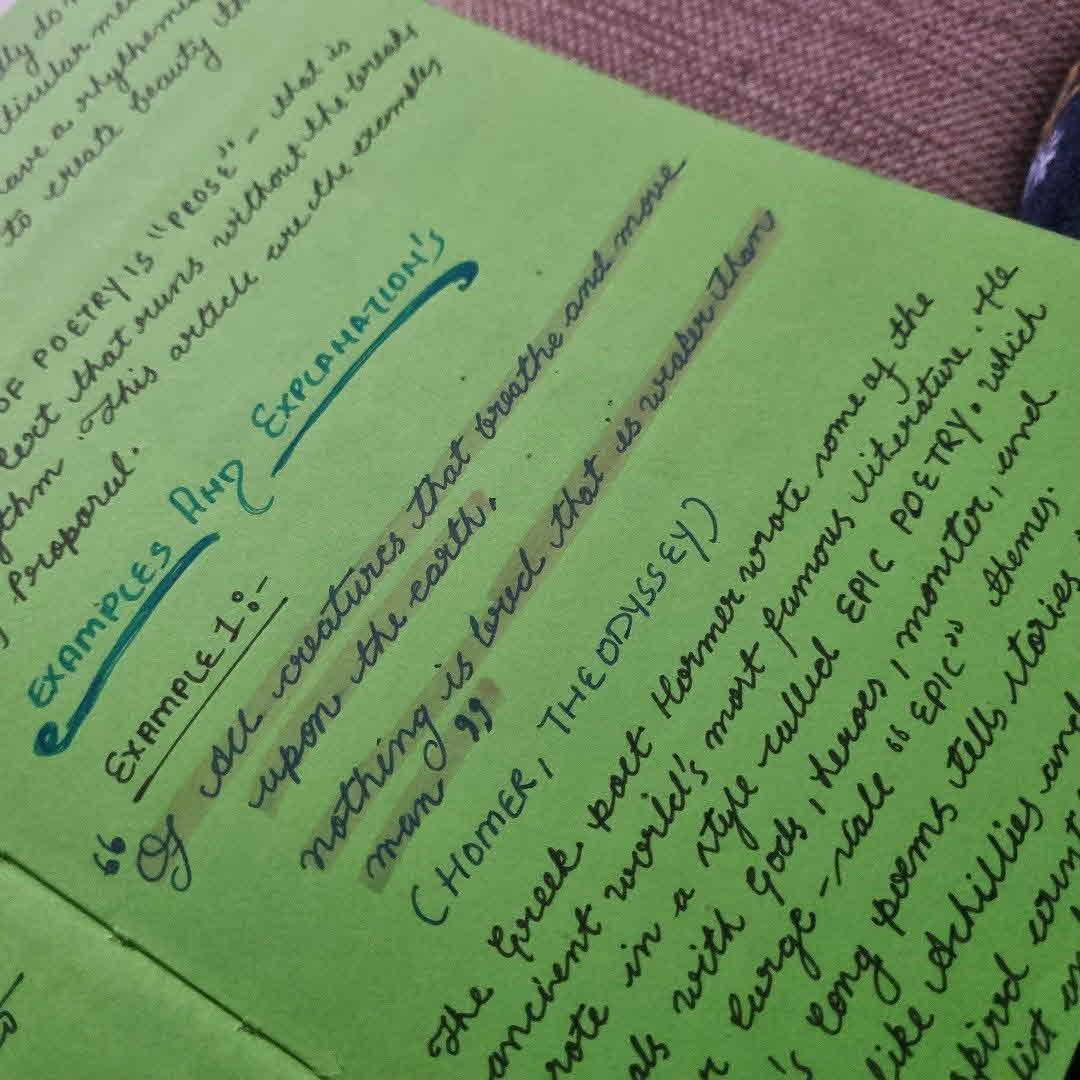 to create beauty
OF POETRY IS "PROSE" - that is
text that runs without the breaks
. This article are the exemples
Proporel.
EXAMPLES AND EXPLANATION'S
EXAMPLE 1:-
"Of all creatures that breathe and move
upon the earth,
nothing is bred that is weaker than
man"
(HOMER, THE ODYSSEY)
The Greek poet Homer wrote some of the
ancient world's most famous literature. He
rote in a style called EPIC POETRY. which
als with Gods, heroes, monster, and
r large-scale "EPIC" themes.
's long poems tells stories
like Achillies and